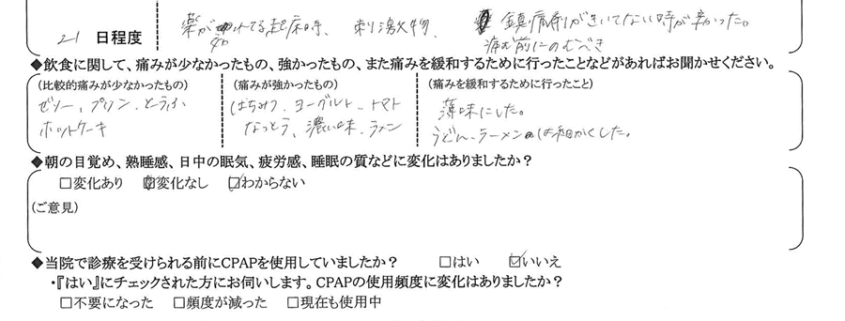 21 日程度
薬がきれてる起床時、刺激物、鎮痛剤がきいてない時が辛かった。
痛む前にのむべき
◆飲食に関して、痛みが少なかったもの、強かったもの、また痛みを緩和するために行ったことなどがあればお聞かせください。
(比較的痛みが少なかったもの) (痛みが強かったもの) (痛みを緩和するために行ったこと)
ゼリー、プリン、 はちみつ、ヨーグルト、トマト 薄味にした。
ホットケーキ なっとう、濃い味、ラーメン うどん、ラーメンは細かくした。
◆朝の目覚め、熟睡感、日中の眠気、疲労感、睡眠の質などに変化はありましたか?
□変化あり □変化なし ☑わからない
(ご意見)
◆当院で診療を受けられる前にCPAPを使用していましたか? □はい ☑いいえ
・『はい』にチェックされた方にお伺いします。CPAPの使用頻度に変化はありましたか?
□不要になった □頻度が減った □現在も使用中